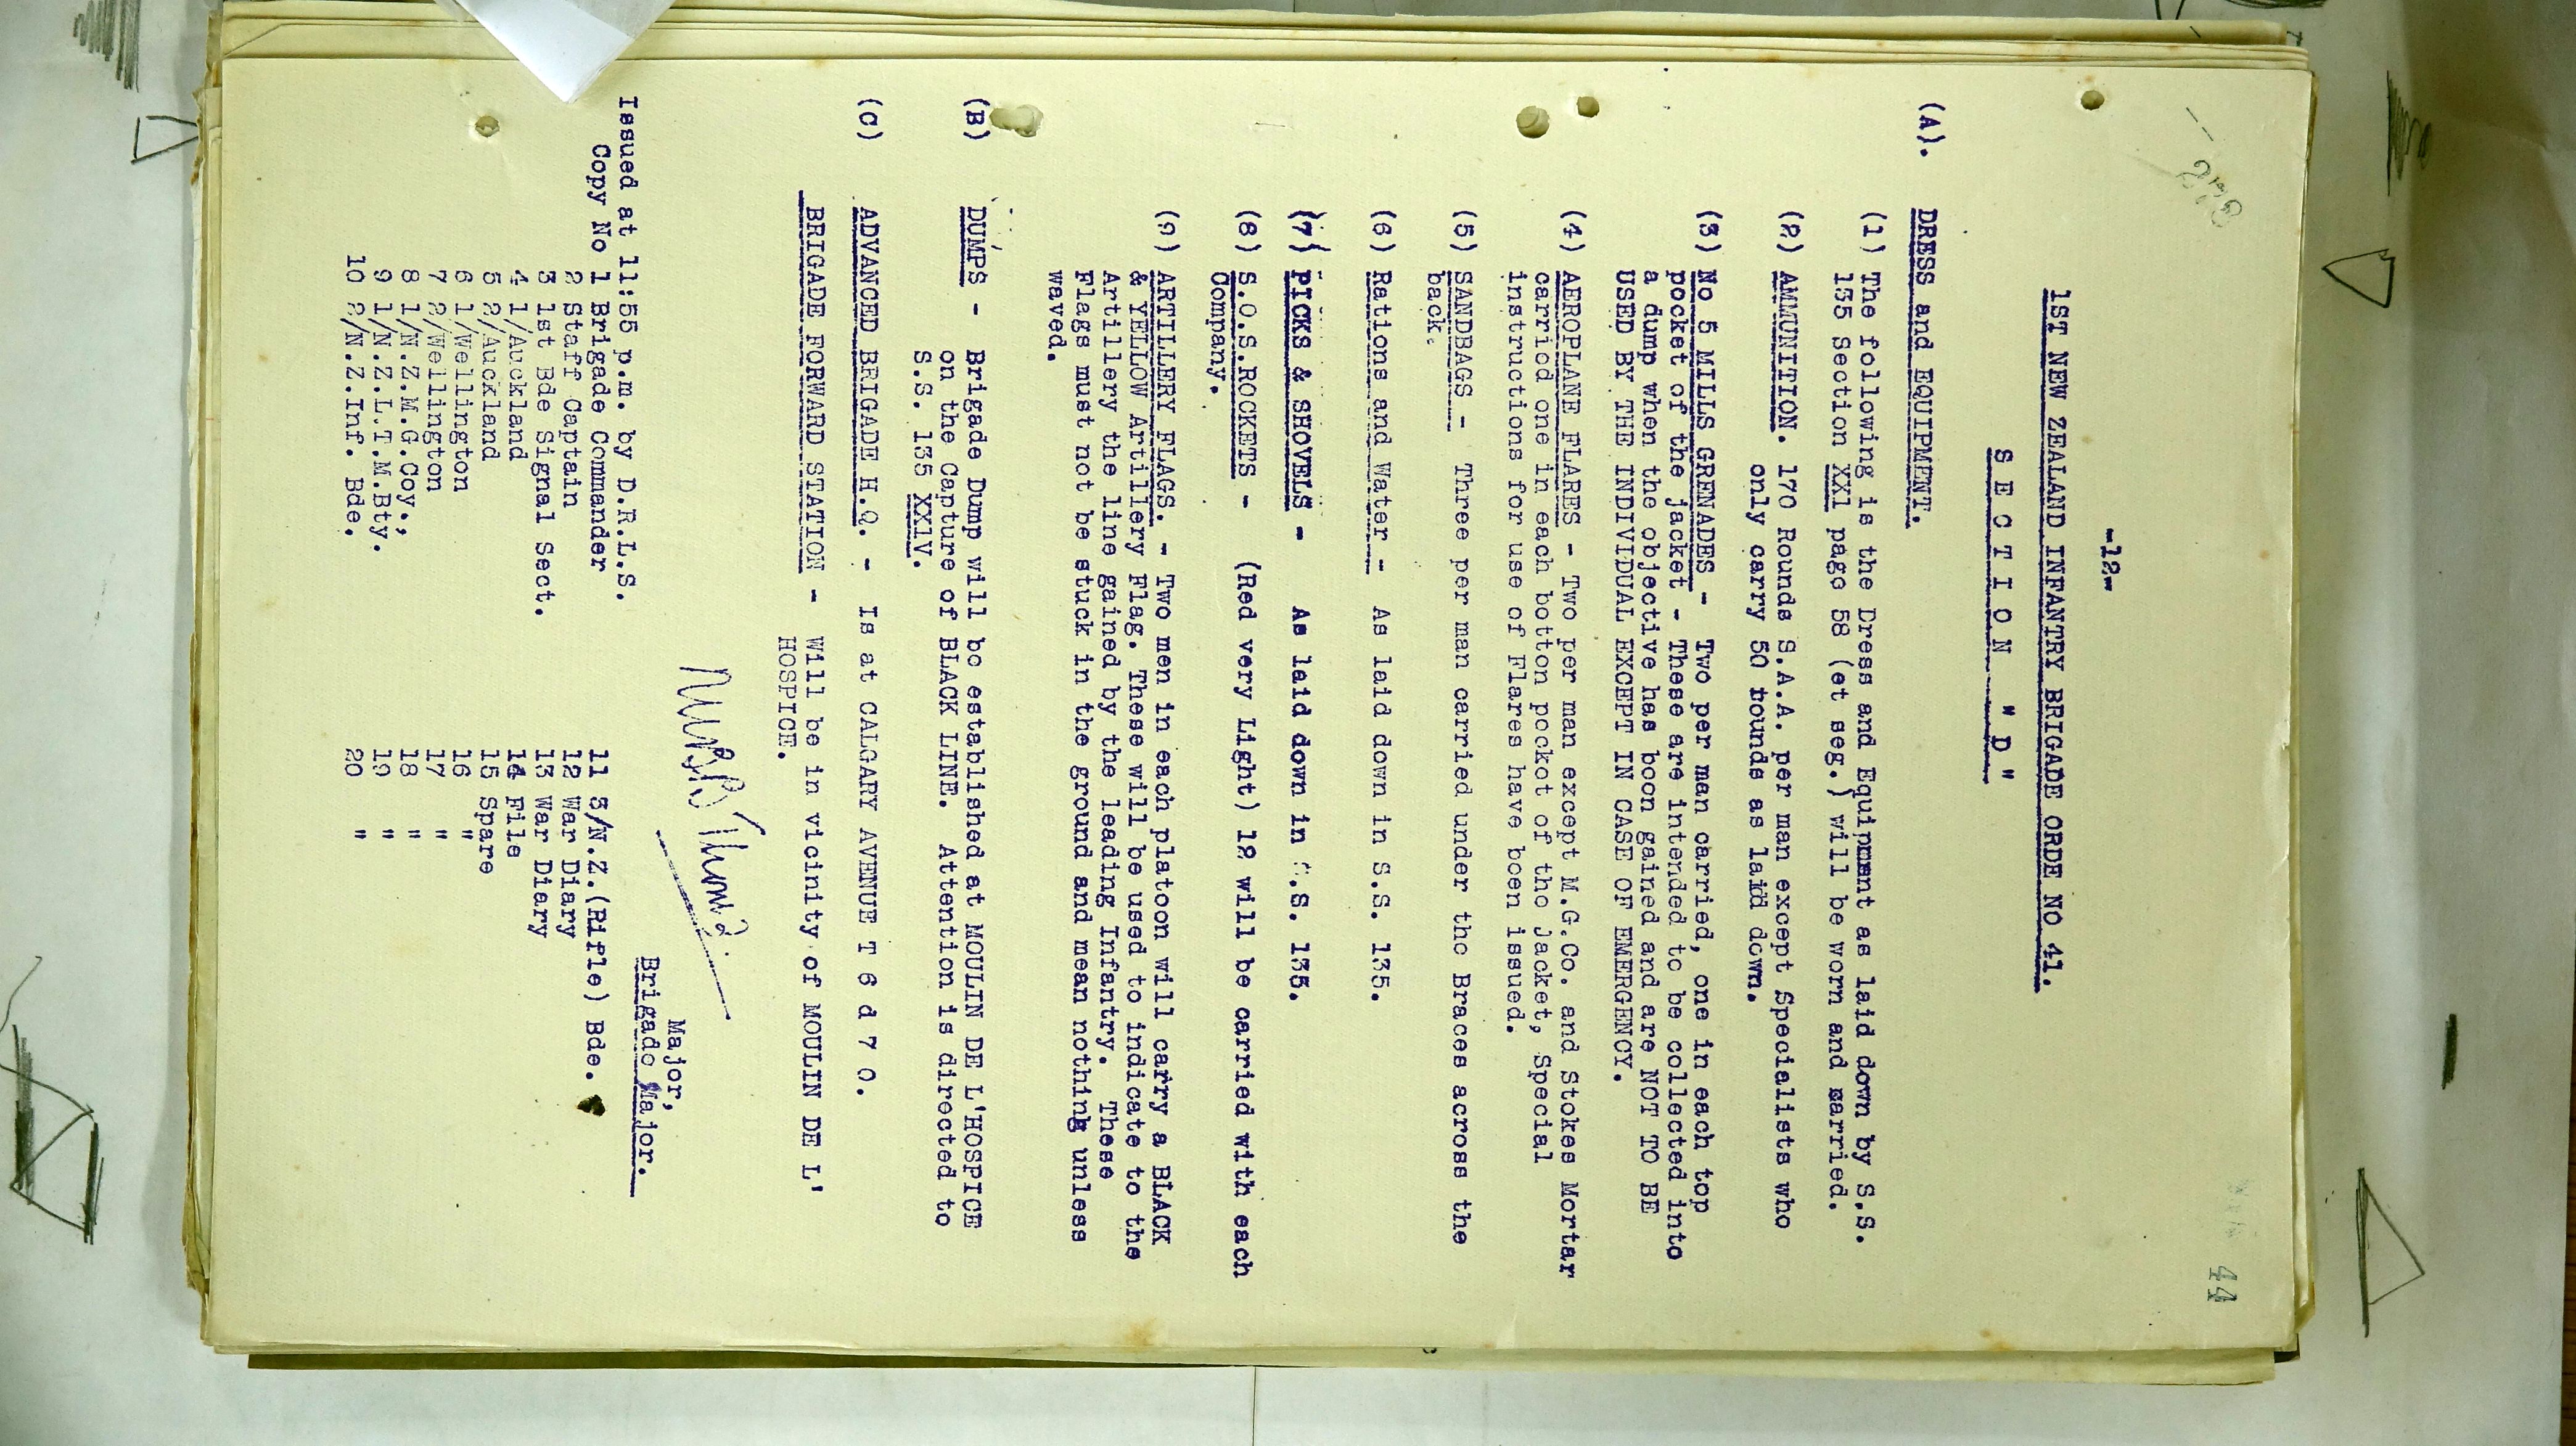 44
-12-
1ST NEW ZEALAND INFANTRY BRIGADE ORDE NO 41.
S E C T I O N "D"
(A). DRESS and EQUIPMENT.
(1) The following is the Dress and Equipment as laid down by S.S.
135 Section XX1 page 58 (et seg.) will be worn and carried.
(2) AMMUNITION. 170 Rounds S.A.A. per man except Specialists who
only carry 50 rounds as laid down.
(3) No 5 MILLS GRENADES - Two per man carried, one in each top
pocket of the jacket - These are intended to be collected into
a dump when the objective has boon gained and are NOT TO BE
USED BY THE INDIVIDUAL EXCEPT IN CASE OF EMERGENCY.
(4) AEROPLANE FLARES - Two per man except M.G.Co. and Stokes Mortar
carried one in each botton pocket of the jacket, Special
instructions for use of Flares have been issued.
(5) SANDBAGS - Three per man carried under the Braces across the
back.
(6) Rations and Water - As laid down in S.S. 135.
(7) PICKS & SHOVELS - As laid down in S.S. 135.
(8) S.O.S.ROCKETS - (Red very Light) 12 will be carried with each
Company.
(9) ARTILLERY FLAGS. - Two men in each platoon will carry a BLACK
& YELLOW Artillery Flag. These will be used to indicate to the
Artillery the line gained by the leading Infantry. These
Flags must not be stuck in the ground and mean nothing unless
waved.
(B) DUMPS - Brigade Dump will be established at MOULIN DE L'HOSPICE
on the Capture of BLACK LINE. Attention is directed to
S.S. 135 XX1V.
(C) ADVANCED BRIGADE H.Q. - Is at CALGARY AVENUE T 6 d 7 0.
BRIGADE FORWARD STATION - Will be in vicinity of MOULIN DE L'
HOSPICE.
Major,
Brigade Major.
Issued at 11:55 p.m. by D.R.L.S.
Copy No 1 Brigade Commander 11 3/N.Z.(Rifle) Bde.
2 Staff Captain 12 War Diary
3 1st Bde Signal Sect. 13 War Diary
4 1/Auckland 14 File
5 2/Auckland 15 Spare
6 1/Wellington 16 "
7 2/Wellington 17 "
8 1/N.Z.M.G.Coy., 18 "
9 1/N.Z.L.T.M.Bty. 19 "
10 2/N.Z.Inf. Bde. 20 "